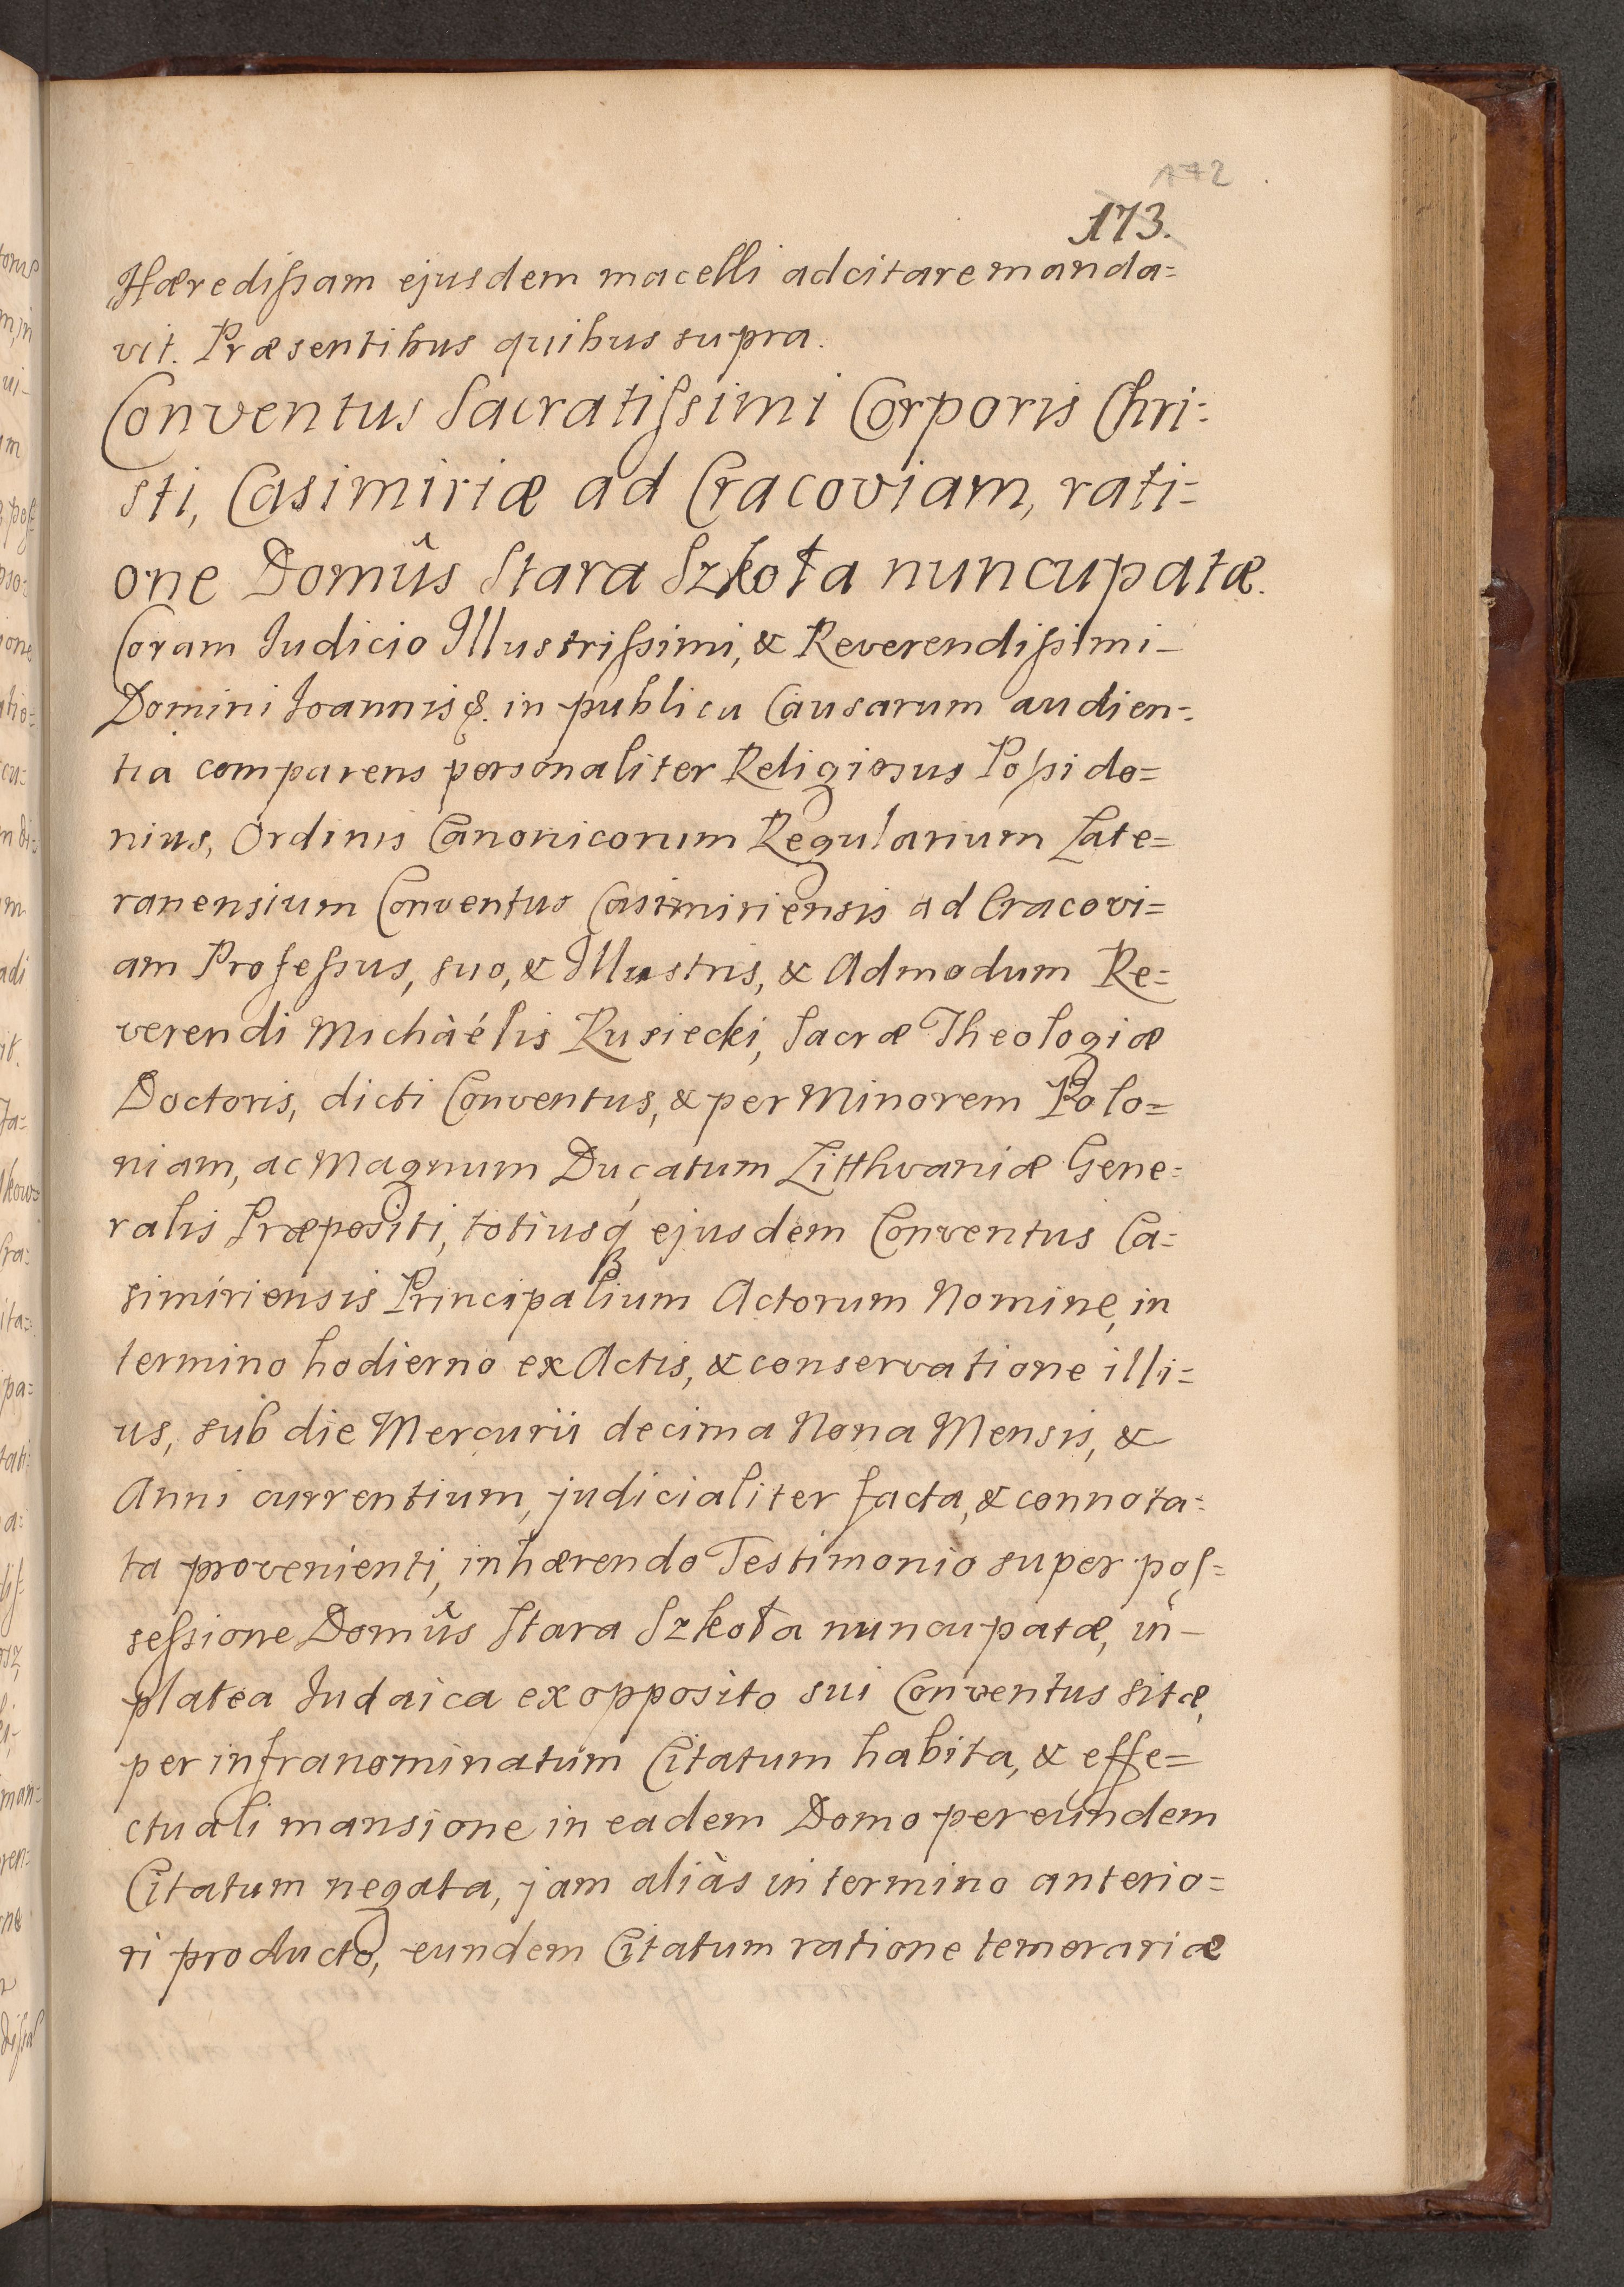 172
173.
Hæredissam ejusdem macelli adcitare manda=
vit. Præsentibus quibus supra.
Conventus Sacratissimi Corporis Chri=
sti, Casimiriæ ad Cracoviam, rati=
one Domûs Stara Szkoła nuncupatæ.
Coram Iudicio Illustrissimi, & Reverendissimi
Domini Ioannis &. in publica Causarum audien=
tia comparens personaliter Religiosus Possido=
nius, Ordinis Canonicorum Regularium Late=
ranensium Conventus Casimiriensis ad Cracovi=
am Professus, suo, & Illustris, & Admodum Re=
verendi Michàélis Rusiecki, Sacræ Theologiæ
Doctoris, dicti Conventus, & per Minorem Polo=
niam, ac Magnum Ducatum Litthvaniæ Gene=
ralis Præpositi, totiusq́ ejusdem Conventus Ca=
simiriensis Principalium Actorum Nomine, in
termino hodierno ex Actis, & conservatione illi=
us, sub die Mercurii decima Nona Mensis, &
Anni currentium, judicialiter facta, & connota=
ta provenienti, inhærendo Testimonio super pos=
sessione Domûs Stara Szkoła nuncupatæ, in
platea Iudaica ex opposito sui Conventus sitæ,
per infranominatum Citatum habita, & effe=
ctuali mansione in eadem Domo per eundem
Citatum negata, jam aliàs in termino anterio=
ri producto, eundem Citatum ratione temerariæ